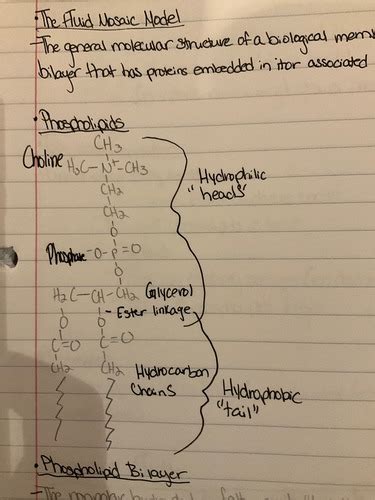 • The Fluid Mosaic Model
- The general molecular structure of a biological mem
bilayer that has proteins embedded in it or associated
• Phospholipids
CH3
Choline H3C-N+-CH3
CH2
CH2
Hydrophilic
"heads"
O
Phosphate -O-P=O
O
H2C-CH-CH2 Glycerol
O O - Ester linkage
C=O C=O
CH2 CH2 Hydrocarbon
chains
Hydrophobic
"tail"
• Phospholipid Bilayer
- The